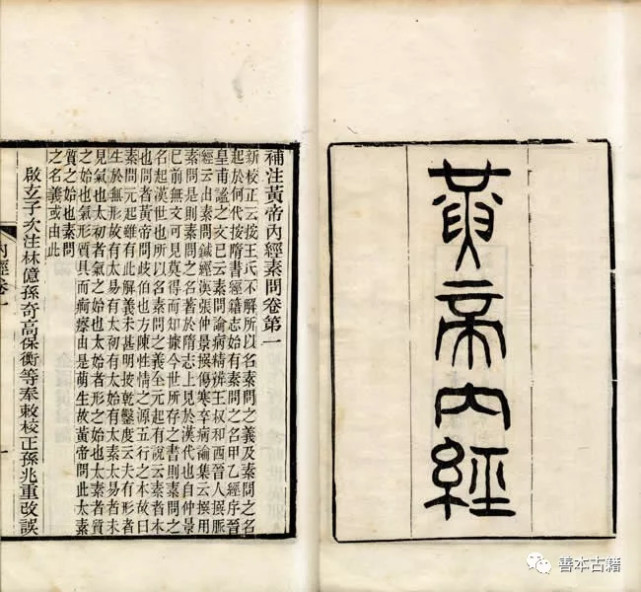 黃帝內經
補注黃帝內經素問卷第一
新校正云按王氏不解所以名素問之義及素問之名
起於何代按隋書經籍志始有素問之名甲乙經序晉
皇甫謐之文已云素問論病精辨王叔和西晉人撰脈
經云出素問鍼經漢張仲景撰傷寒卒病論集云撰用
素問是則素問之名著於隋志上見於漢代也自仲景
已前無文可見莫得而知據今世所存之書則素問之
名起漢世也所以名素問之義全元起有說云素者本
也問者黃帝問歧伯也方陳性情之源五行之本故曰
素問元起雖有此解義未甚明按乾鑿度云夫有形者
生於無形故有太易有太初有太始有太素太易者未
見氣也太初者氣之始也太始者形之始也太素者質
之始也氣形質具而痾瘵由是萌生故黃帝問此太素
質之始也素問
之名義或由此
啟玄子次注林億孫奇高保衡等奉敕校正孫兆重改誤
內經卷一
一
善本古籍